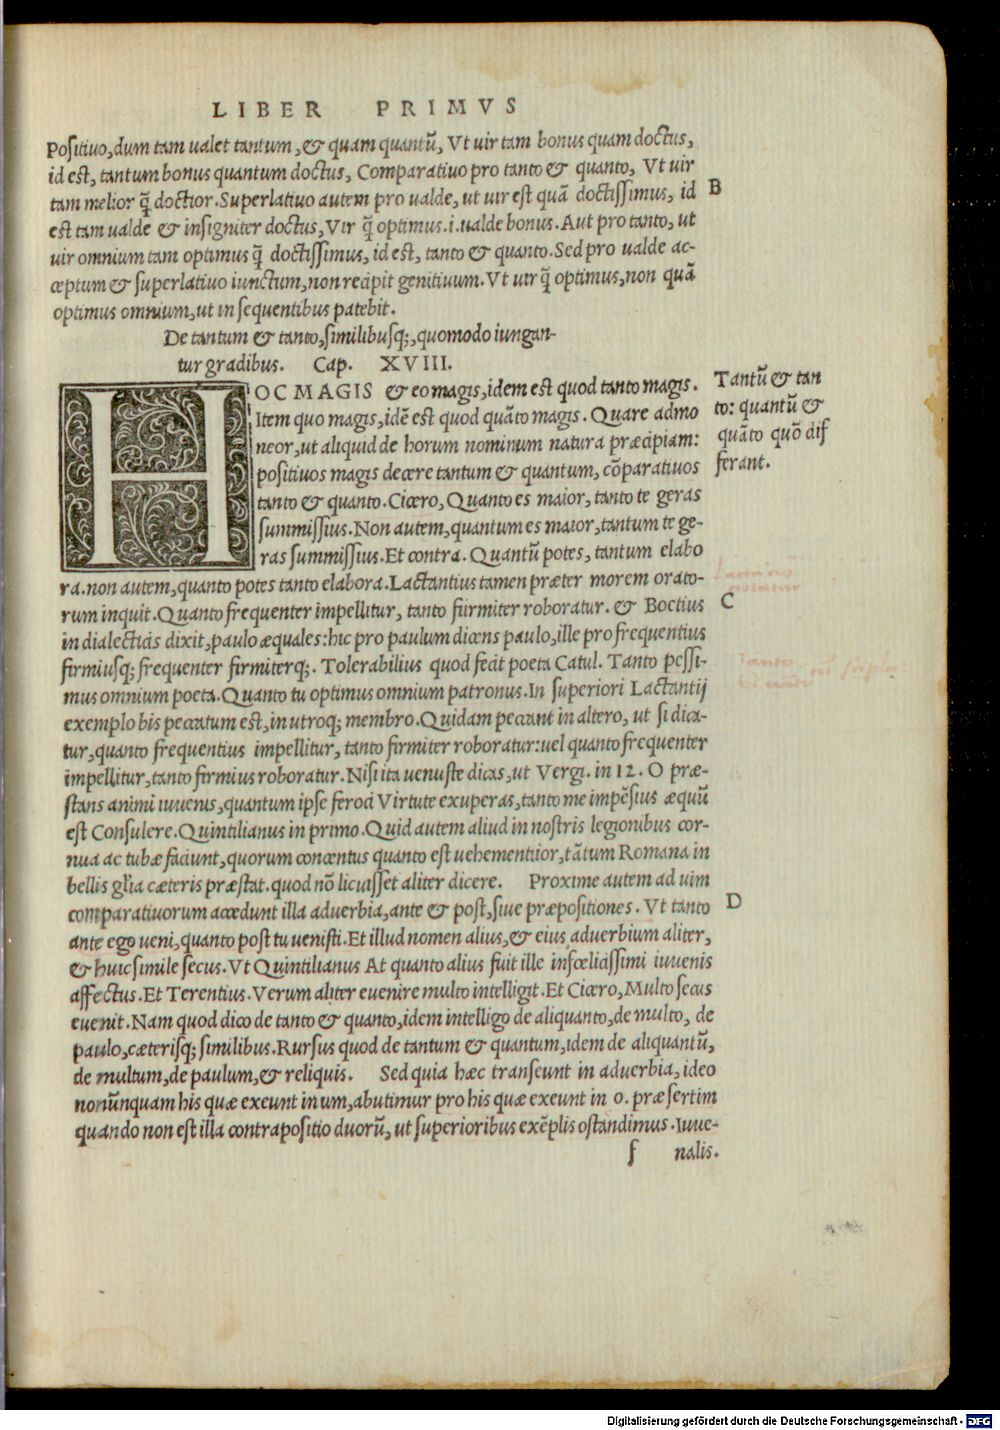 LIBER PRIMVS
Positiuo, dum tam ualet tantum, & quam quantū, Vt uir tam bonus quam doctus,
id est, tantum bonus quantum doctus, Comparatiuo pro tanto & quanto, Vt uir
tam melior q̄ doctior. Superlatiuo autem pro ualde, ut uir est quā doctissimus, id
B
est tam ualde & insigniter doctus, Vir q̄ optimus .i. ualde bonus. Aut pro tanto, ut
uir omnium tam optimus q̄ doctissimus, id est, tanto & quanto. Sed pro ualde ac-
ceptum & superlatiuo iunctum, non recipit genitiuum. Vt uir q̄ optimus, non quā
optimus omnium, ut in sequentibus patebit.
De tantum & tanto, similibusq;, quomodo iungan-
tur gradibus. Cap. XVIII.
HOC MAGIS & eo magis, idem est quod tanto magis.
Item quo magis, idē est quod quāto magis. Quare admo
neor, ut aliquid de horum nominum natura præcipiam:
positiuos magis decere tantum & quantum, cōparatiuos
tanto & quanto. Cicero, Quanto es maior, tanto te geras
summissius. Non autem, quantum es maior, tantum te ge-
ras summissius. Et contra. Quantū potes, tantum elabo
Tantū & tan
to: quantū &
quāto quō dif
ferant.
ra. non autem, quanto potes tanto elabora. Lactantius tamen præter morem orato-
rum inquit. Quanto frequenter impellitur, tanto firmiter roboratur. & Boetius
C
in dialecticis dixit, paulo æquales: hic pro paulum dicens paulo, ille pro frequentius
firmiusq; frequenter firmiterq;. Tolerabilius quod fecit poeta Catul. Tanto pessi-
mus omnium poeta. Quanto tu optimus omnium patronus. In superiori Lactantij
exemplo bis peccatum est, in utroq; membro. Quidam peccant in altero, ut si dica-
tur, quanto frequentius impellitur, tanto firmiter roboratur: uel quanto frequenter
impellitur, tanto firmius roboratur. Nisi ita uenuste dicas, ut Vergi. in 12. O præ-
stans animi iuuenis, quantum ipse feroci Virtute exuperas, tanto me impēsius æquū
est Consulere. Quintilianus in primo. Quid autem aliud in nostris legionibus cor-
nua ac tubæ faciunt, quorum concentus quanto est uehementior, tātum Romana in
bellis gl̄ia cæteris præstat. quod nō licuisset aliter dicere. Proxime autem ad uim
comparatiuorum accedunt illa aduerbia, ante & post, siue præpositiones. Vt tanto
D
ante ego ueni, quanto post tu uenisti. Et illud nomen alius, & eius aduerbium aliter,
& huic simile secus. Vt Quintilianus At quanto alius fuit ille infœlicissimi iuuenis
affectus. Et Terentius. Verum aliter euenire multo intelligit. Et Cicero, Multo secus
euenit. Nam quod dico de tanto & quanto, idem intelligo de aliquanto, de multo, de
paulo, cæterisq; similibus. Rursus quod de tantum & quantum, idem de aliquantū,
de multum, de paulum, & reliquis. Sed quia hæc transeunt in aduerbia, ideo
nonūnquam his quæ exeunt in um, abutimur pro his quæ exeunt in o. præsertim
quando non est illa contrapositio duorū, ut superioribus exēplis ostandimus. Iuue-
f nalis.
Digitalisierung gefördert durch die Deutsche Forschungsgemeinschaft - DFG